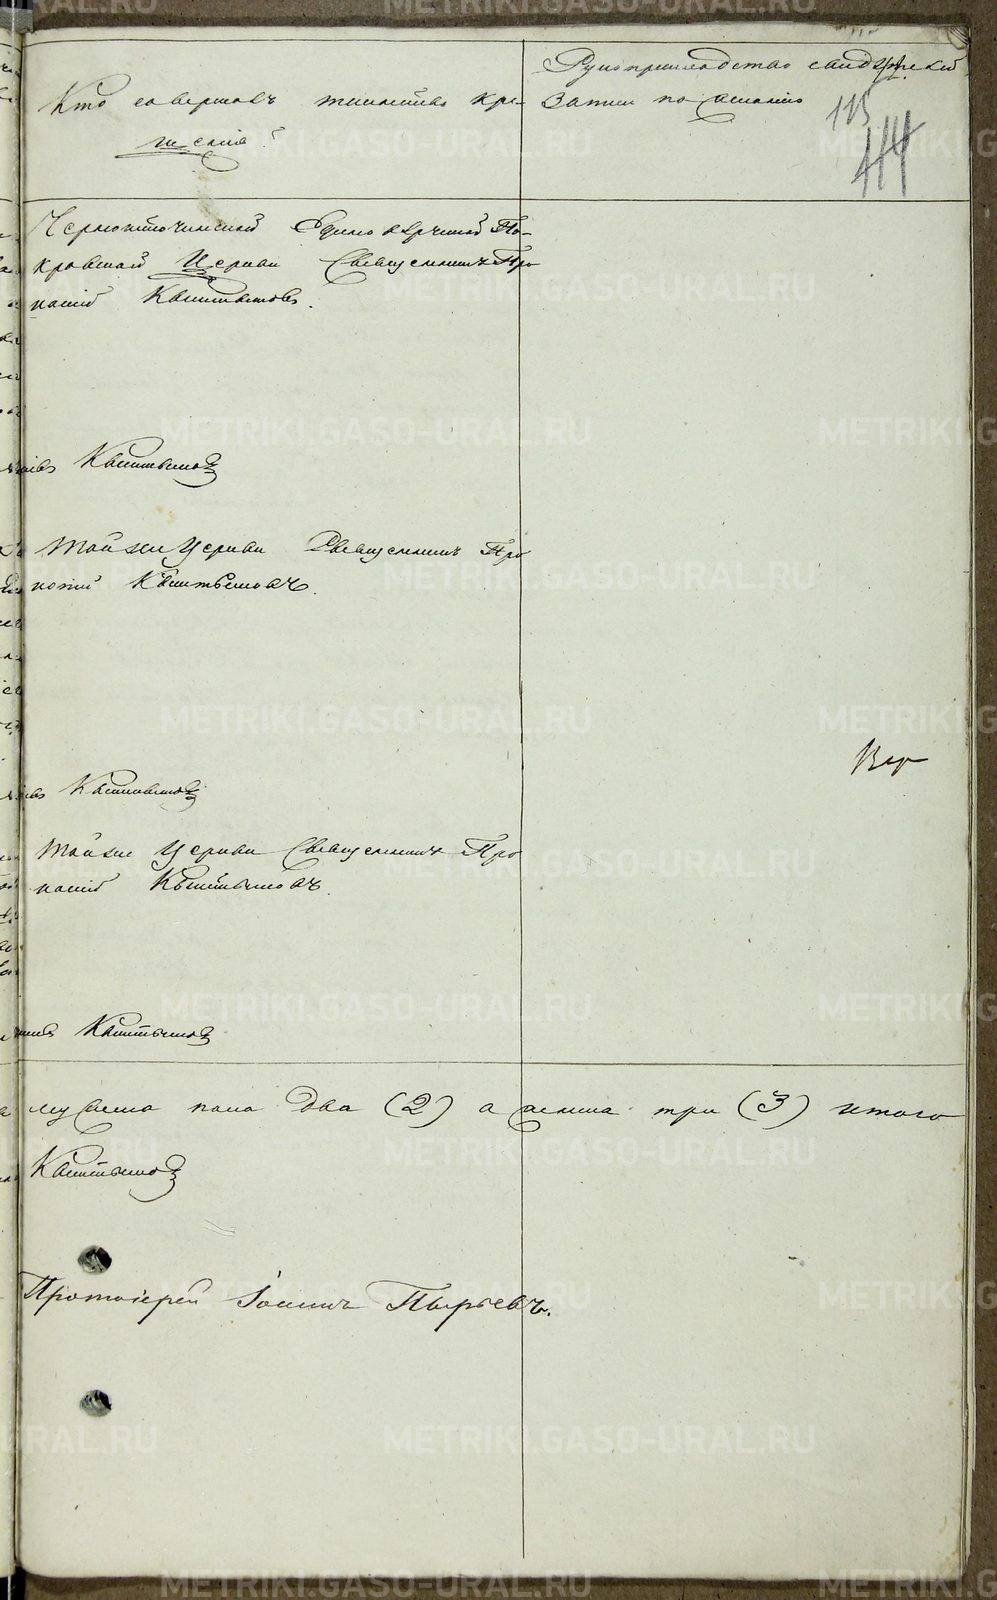 Кто совершалъ таинство кре-
щенія?
Рукоприкладство свидѣтелей
записи по желанію
115
114
Черноисточинской Единовѣрческой По-
кровской Церкви Священникъ Про
копій Кыштымовъ.
Кыштымовъ
Той же Церкви Священникъ Про
копій Кыштымовъ.
Вер
Кыштымовъ
Той же Церкви Священникъ Про
копій Кыштымовъ.
Кыштымовъ
мужеска пола два (2) а женска три (3) итого
Кыштымовъ
Протоіерей Іоаннъ Пырьевъ.
METRIKI.GASO-URAL.RU